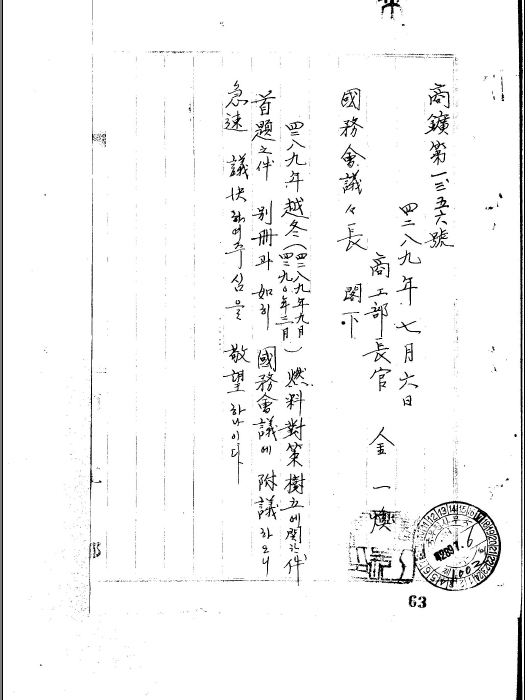 商鑛第一三五六號
四二八九年 七月 六日
商工部長官 金一煥
國務會議々長 閣下
四二八九年 越冬(四二八九年九月 四二九〇年三月) 燃料對策樹立에 關한 件
首題之件 別冊과 如히 國務會議에 附議하오니
急速 議決하여주심을 敬望하나이다
4289.7.6
63